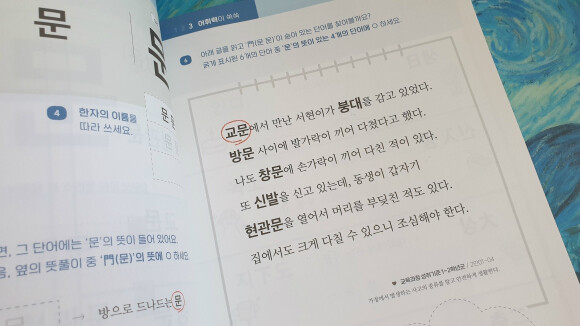 문
문
4 한자의 이름을
따라 쓰세요.
문
면, 그 단어에는 '문'의 뜻이 들어 있어요.
옆의 뜻풀이 중 '門(문)'의 뜻에 ○ 하세요
방으로 드나드는 문
3 어휘력이 쑥쑥
아래 글을 읽고 '門(문 문)'이 숨어 있는 단어를 찾아볼까요?
굵게 표시된 6개의 단어 중 '문'의 뜻이 있는 4개의 단어에 ○ 하세요.
교문에서 만난 서현이가 붕대를 감고 있었다.
방문 사이에 발가락이 끼어 다쳤다고 했다.
나도 창문에 손가락이 끼어 다친 적이 있다.
또 신발을 신고 있는데, 동생이 갑자기
현관문을 열어서 머리를 부딪친 적도 있다.
집에서도 크게 다칠 수 있으니 조심해야 한다.
♥ 교육과정 성취기준 1~2학년군 / 2J01-04
가정에서 발생하는 사고의 종류를 알고 안전하게 생활한다.